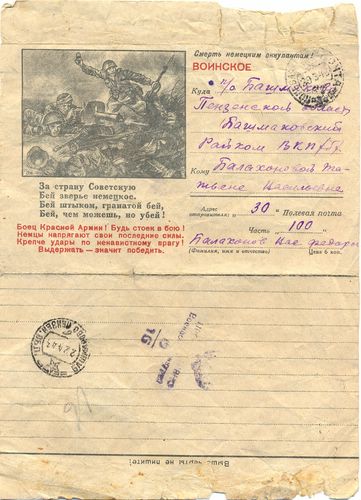 Смерть немецким оккупантам!
ВОИНСКОЕ
Куда п/о Башмаково
Пензенской област
Башмаковский
Райком ВКП/б/
Кому Балахоновой Та-
тьяне Васильевне
За страну Советскую
Бей зверье немецкое.
Бей штыком, гранатой бей,
Бей, чем можешь, но убей!
Боец Красной Армии! Будь стоек в бою!
Немцы напрягают свои последние силы.
Крепче удары по ненавистному врагу!
Выдержать — значит победить.
Адрес отправителя: 30 Полевая почта
Часть 100
Балахонов
(Фамилия, имя и отчество) Цена 5 коп.
Выше черты не пишите!